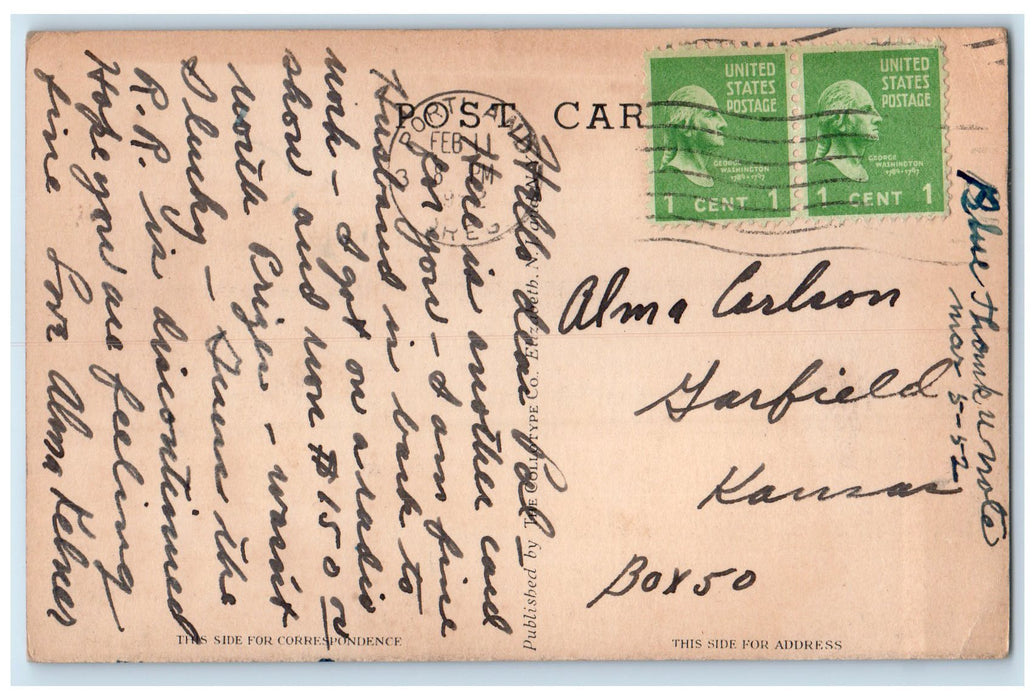 POST CAR
UNITED
STATES
POSTAGE
GEORGE
WASHINGTON
1789-1797
1 CENT 1
UNITED
STATES
POSTAGE
GEORGE
WASHINGTON
1789-1797
1 CENT 1
PORTLAND
FEB 11
3
ORE
Hello dear Pal –
Here is another card
for you – I am fine
Husband in back to
work – I got on a radio
show and won $150 00
worth Prizes – wasn't
I lucky – Guess the
R.R. is discontinued
Hope you are feeling
fine Love Alma Kelner
Published by THE COLLOTYPE CO. Elizabeth, N.
Alma Carlson
Garfield
Kansas
Box 50
Blue thank u note
mar 5-52
THIS SIDE FOR CORRESPONDENCE
THIS SIDE FOR ADDRESS